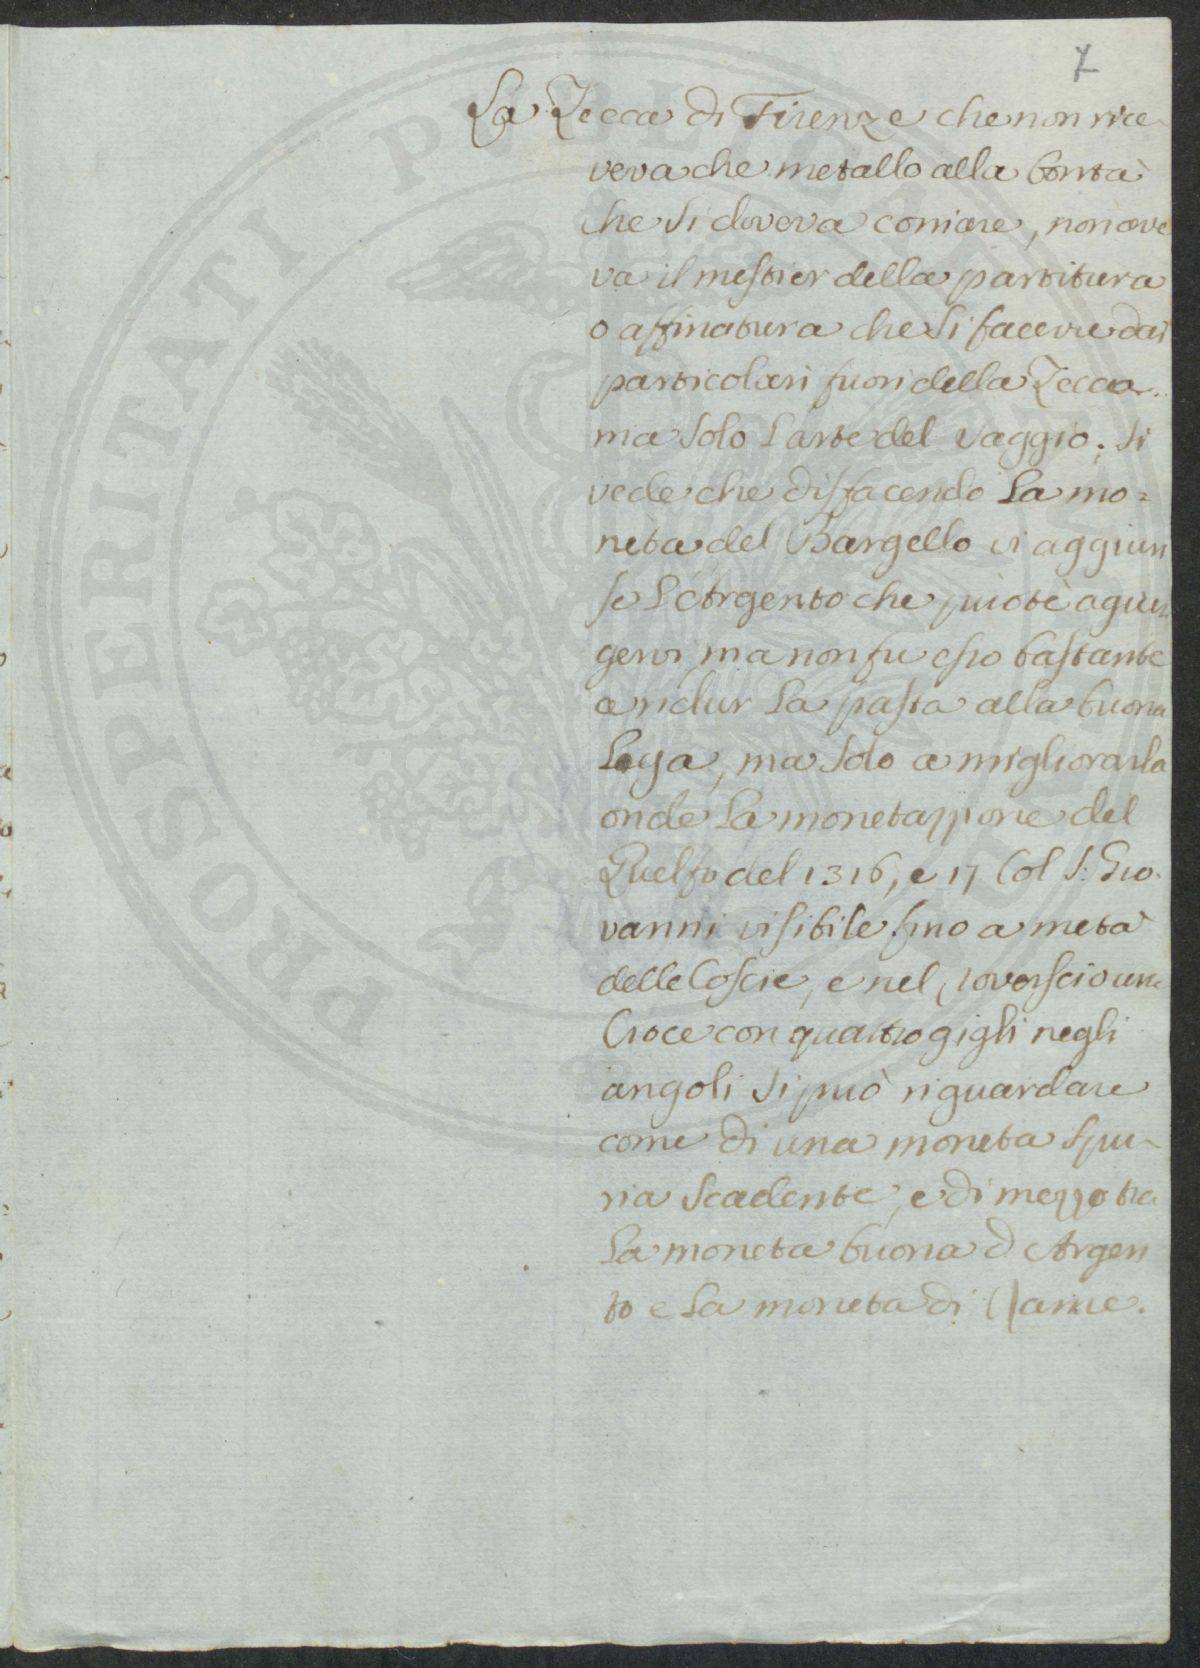 7
La Zecca di Firenze che non rice-
veva che metallo alla bontà
che si doveva coniare, non ave
va il mestier della partitura
o affinatura che si faceva dai
particolari fuori della Zecca
ma solo l'arte del saggio; si
vede che disfacendo la mo=
neta del Bargello vi aggiun
se l'Argento che puotè agiun
gervi, ma non fu ciò bastante
a ridur la pasta alla buona
Lega, ma solo a migliorarla
onde la monetazzione del
Guelfo del 1316, e 17 Col S: Gio-
vanni visibile fino a metà
delle Coscie, e nel rovescio una
Croce con quattro gigli negli
angoli si può riguardare
come di una moneta spu-
ria scadente, e di mezzo tra
la moneta buona d'Argen
to e la moneta di Rame.
PROSPERITATI PVBLICAE